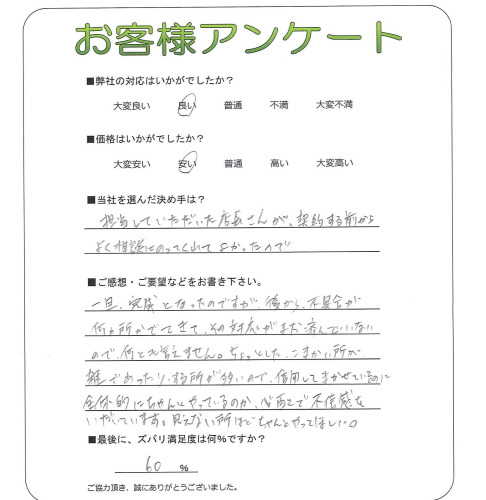 お客様アンケート
■弊社の対応はいかがでしたか？
大変良い 良い 普通 不満 大変不満
■価格はいかがでしたか？
大変安い 安い 普通 高い 大変高い
■当社を選んだ決め手は？
担当していただいた店長さんが、契約する前から
よく相談にのってくれてよかったので
■ご感想・ご要望などをお書き下さい。
一旦、完成となったのですが、後から、不具合が
何ヶ所かでてきて、その対応がまだ済んでいない
ので、何とも言えません。ちょっとした、こまかい所が
雑であったりする所が多いので、信用してまかせているのに
全体的にちゃんとやっているのか、心配で不信感を
いだいています。見えない所ほどちゃんとやってほしい。
■最後に、ズバリ満足度は何%ですか？
60 %
ご協力頂き、誠にありがとうございました。